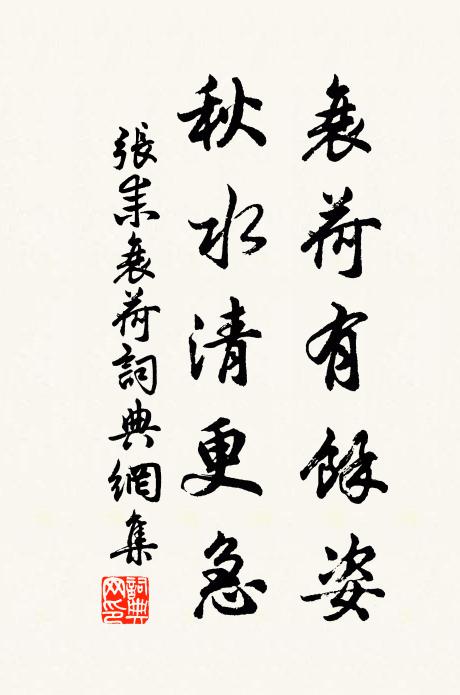 衰荷有餘姿
秋水清更急
張耒衰荷詞典網集
詞典网印